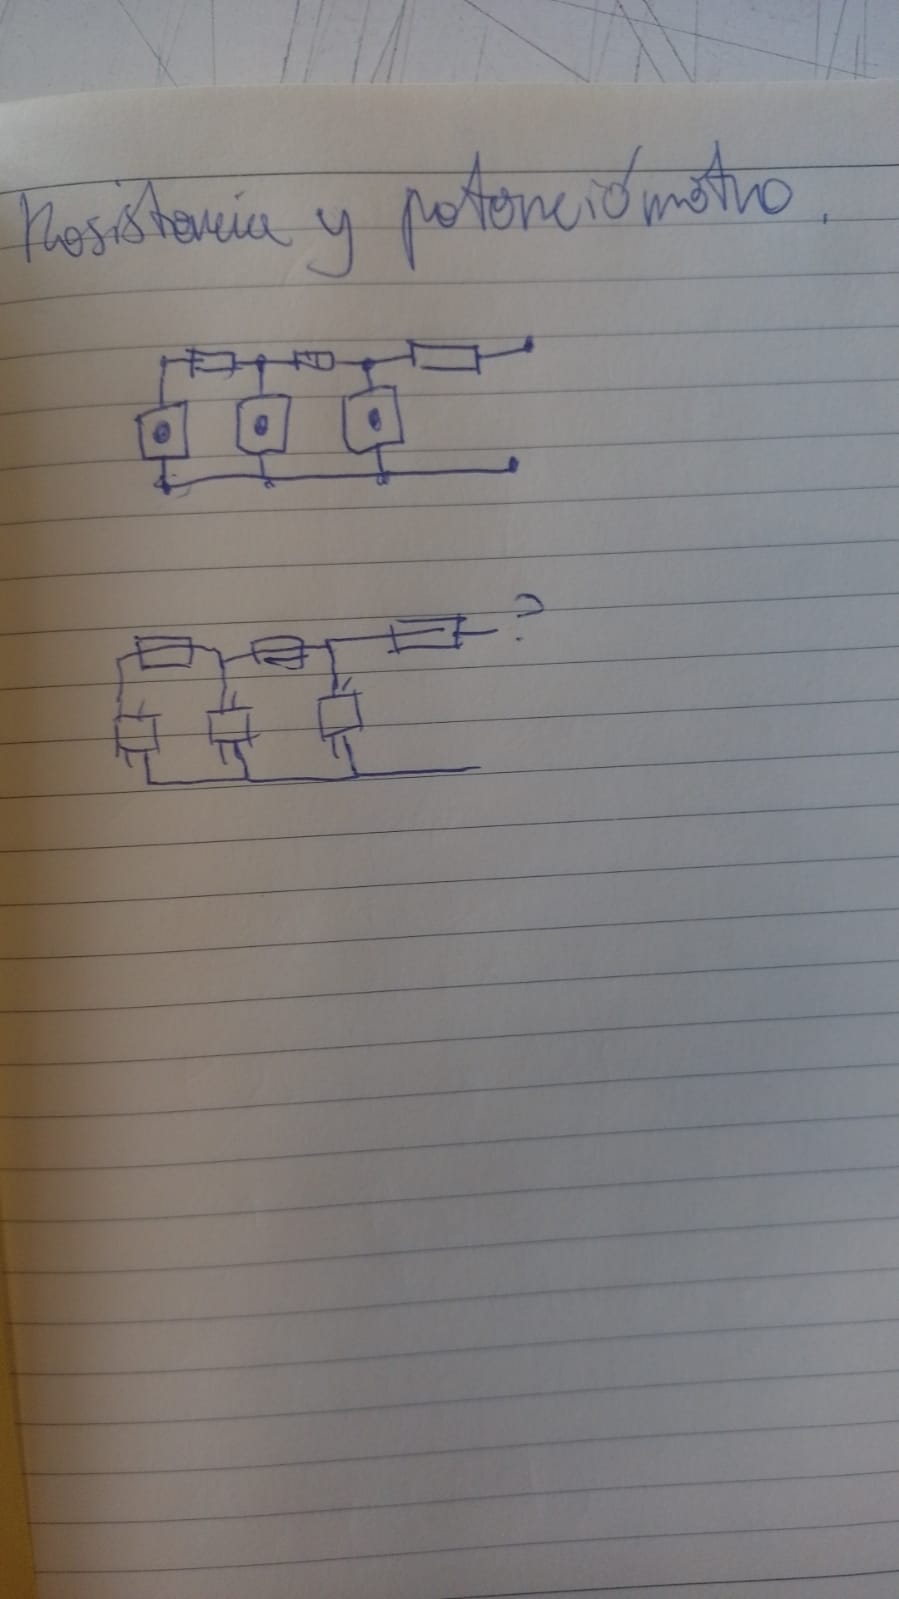 Resistencia y potenciómetro.
?